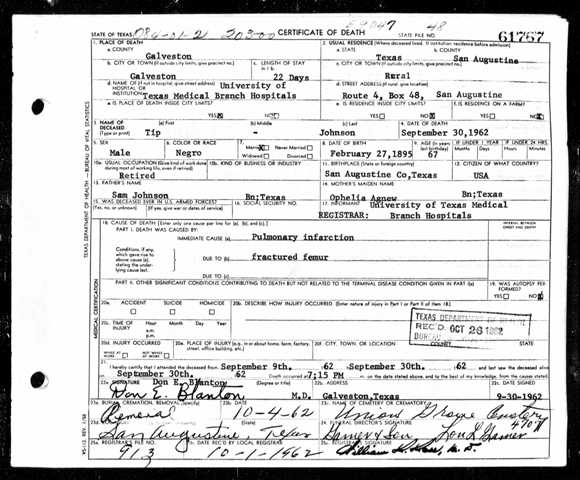 STATE OF TEXAS 084-01-2 20300 CERTIFICATE OF DEATH 48
STATE FILE NO. 61767
1. PLACE OF DEATH
a. COUNTY
Galveston
2. USUAL RESIDENCE (Where deceased lived. If institution: residence before admission)
a. STATE Texas b. COUNTY San Augustine
b. CITY OR TOWN (If outside city limits, give precinct no.)
Galveston
c. LENGTH OF STAY
22 Days
c. CITY OR TOWN (If outside city limits, give precinct no.)
Rural
d. NAME OF (If not in hospital, give street address)
HOSPITAL OR INSTITUTION University of
Texas Medical Branch Hospitals
d. STREET ADDRESS (If rural, give location)
Route 4, Box 48, San Augustine
e. IS PLACE OF DEATH INSIDE CITY LIMITS?
YES X NO
e. IS RESIDENCE INSIDE CITY LIMITS?
YES NO X
f. IS RESIDENCE ON A FARM?
YES NO
3. NAME OF DECEASED (Type or print)
(a) First Tip (b) Middle - (c) Last Johnson
4. DATE OF DEATH
September 30,1962
5. SEX
Male
6. COLOR OR RACE
Negro
7. Married Never Married
Widowed Divorced
8. DATE OF BIRTH
February 27,1895
9. AGE (In years last birthday)
67
IF UNDER 1 YEAR
Months Days
IF UNDER 24 HRS.
Hours Minutes
10a. USUAL OCCUPATION (Give kind of work done during most of working life, even if retired)
Retired
10b. KIND OF BUSINESS OR INDUSTRY
11. BIRTHPLACE (State or foreign country)
San Augustine Co,Texas
12. CITIZEN OF WHAT COUNTRY?
USA
13. FATHER'S NAME
Sam Johnson Bn;Texas
14. MOTHER'S MAIDEN NAME
Ophelia Agnew Bn;Texas
15. WAS DECEASED EVER IN U.S. ARMED FORCES?
(Yes, no, or unknown) (If yes, give war or dates of service)
16. SOCIAL SECURITY NO.
17. INFORMANT University of Texas Medical
REGISTRAR: Branch Hospitals
18. CAUSE OF DEATH [Enter only one cause per line for (a), (b), and (c).]
INTERVAL BETWEEN ONSET AND DEATH
PART I. DEATH WAS CAUSED BY:
IMMEDIATE CAUSE (a) Pulmonary infarction
Conditions, if any, which gave rise to above cause (a), stating the underlying cause last.
DUE TO (b) fractured femur
DUE TO (c)
PART II. OTHER SIGNIFICANT CONDITIONS CONTRIBUTING TO DEATH BUT NOT RELATED TO THE TERMINAL DISEASE CONDITION GIVEN IN PART I(a)
19. WAS AUTOPSY PERFORMED?
YES NO X
20a. ACCIDENT SUICIDE HOMICIDE
20b. DESCRIBE HOW INJURY OCCURRED (Enter nature of injury in Part I or Part II of item 18.)
20c. TIME OF INJURY Hour Month Day Year
a.m.
p.m.
TEXAS DEPARTMENT OF HEALTH
REC'D OCT 26 1962
BUREAU
20d. INJURY OCCURRED
WHILE AT WORK NOT WHILE AT WORK
20e. PLACE OF INJURY (e.g. in or about home, farm, factory, street, office building, etc.)
20f. CITY, TOWN, OR LOCATION COUNTY STATE
21. I hereby certify that I attended the deceased from September 9th. 62 September 30th. 62
September 30th. 62 Death occurred at 7;15 PM m. on the date stated above, and to the best of my knowledge, from the causes stated.
22a. SIGNATURE Don E. Blanton (Degree or title)
Don E. Blanton M.D.
22b. ADDRESS
Galveston,Texas
22c. DATE SIGNED
9-30-1962
23a. BURIAL, CREMATION, REMOVAL (Specify)
Removal
23b. DATE
10-4-62
23c. NAME OF CEMETERY OR CREMATORY
Union Grove Cemetery
San Augustine, Texas
24. FUNERAL DIRECTOR'S SIGNATURE
4707
25a. REGISTRAR'S FILE NO.
913
25b. DATE REC'D BY LOCAL REGISTRAR
10-1-1962
25c. REGISTRAR'S SIGNATURE
TEXAS DEPARTMENT OF HEALTH—BUREAU OF VITAL STATISTICS
MEDICAL CERTIFICATION